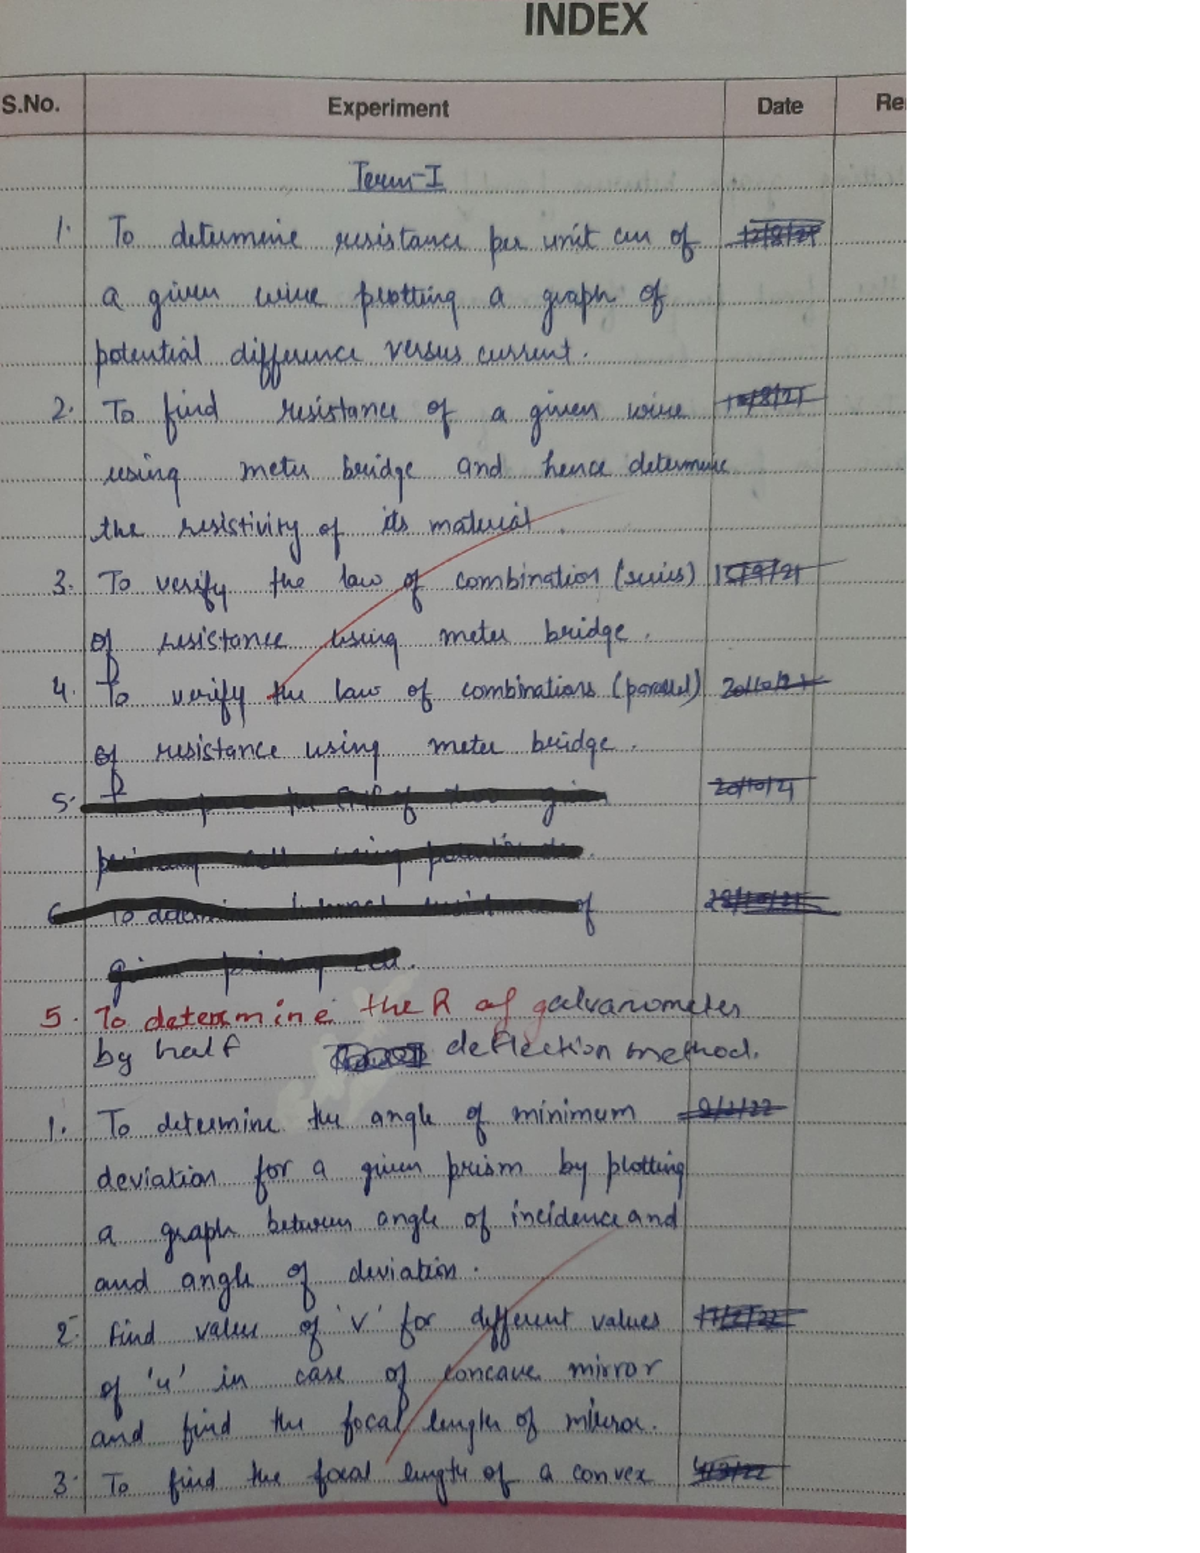 INDEX
S.No. Experiment Date Re
Term-I
1. To determine resistance per unit cm of
a given wire plotting a graph of
potential difference versus current.
2. To find resistance of a given wire
using meter bridge and hence determine
the resistivity of its material.
3. To verify the law of combination (series)
of resistance using meter bridge.
4. To verify the law of combinations (parallel) 20/10/21
of resistance using meter bridge.
5. 20/10/21
6 of
5. To determine the R of galvanometer
by half deflection method.
1. To determine the angle of minimum
deviation for a given prism by plotting
a graph between angle of incidence and
and angle of deviation.
2. Find value of 'v' for different values
of 'u' in case of concave mirror
and find the focal length of mirror.
3. To find the focal length of a convex